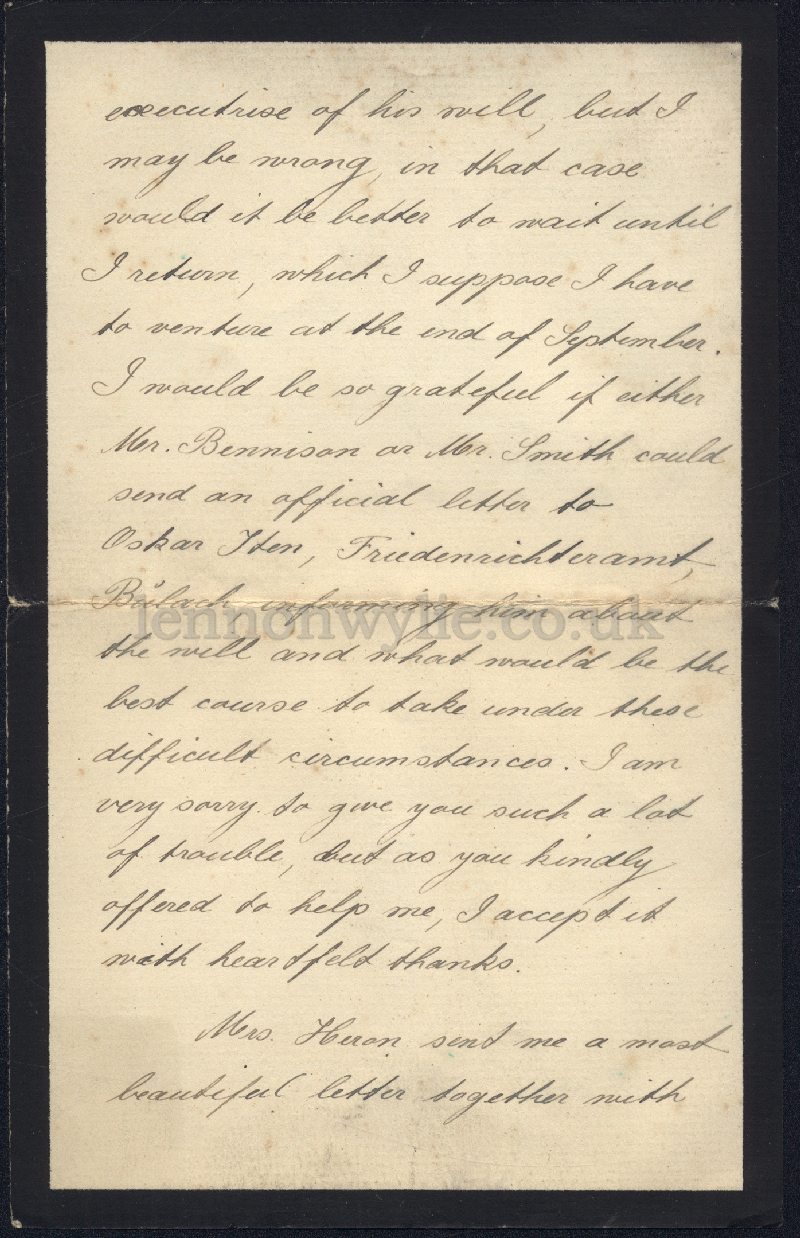 executrise of his will, but I
may be wrong, in that case
would it be better to wait until
I return, which I suppose I have
to venture at the end of September.
I would be so grateful if either
Mr. Bennison or Mr. Smith could
send an official letter to
Oskar Iten, Friedenrichteramt,
Bülach informing him about
lennonwylie.co.uk
the will and what would be the
best course to take under these
difficult circumstances. I am
very sorry to give you such a lot
of trouble, but as you kindly
offered to help me, I accept it
with heartfelt thanks.
Mrs. Heron sent me a most
beautiful letter together with